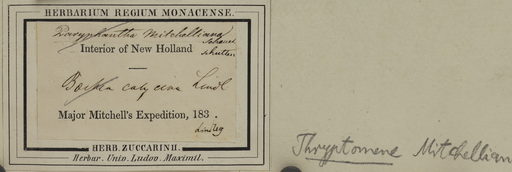 HERBARIUM REGIUM MONACENSE.
Paryphantha Mitchelliana
Schauer
Interior of New Holland
Baeckea calycina Lindl
Major Mitchell's Expedition, 183 .
Lindley
HERB. ZUCCARINII.
Herbar. Univ. Ludov. Maximil.
Thryptomene Mitchellian